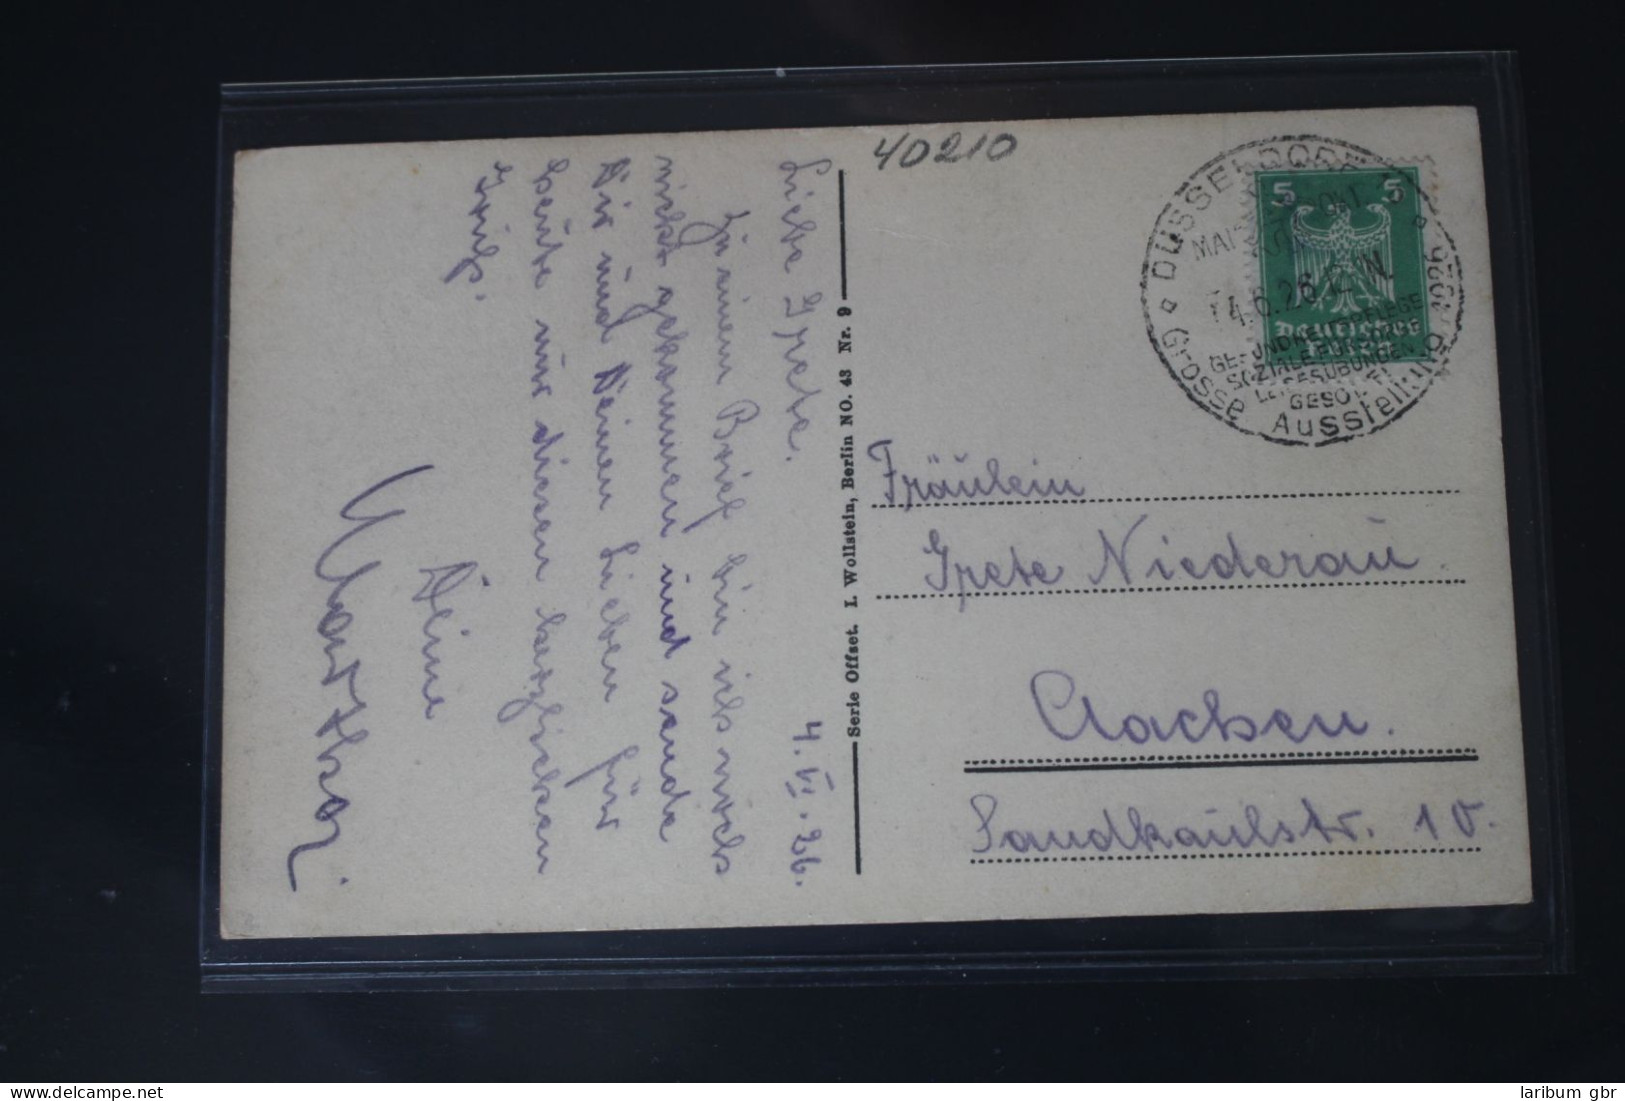 40210
DÜSSELDORF
MAI - OKT.
4.6.26
GESUNDHEITSPFLEGE
SOZIALE FÜRSORGE
LEIBESÜBUNGEN
GESOLEI
Grosse Ausstellung 1926
5 5
Deutsches
Reich
Fräulein
Grete Niederau
Aachen.
Sandkaulstr. 10.
Serie Offset. I. Wollstein, Berlin NO. 43 Nr. 9
4. VI. 26.
Liebe Grete.
Zu einem Brief bin ich noch
nicht gekommen und sende
Dir und Deinen Lieben für
heute nur diesen herzlichen
Gruß.
Deine
www.delcampe.net
laribum gbr